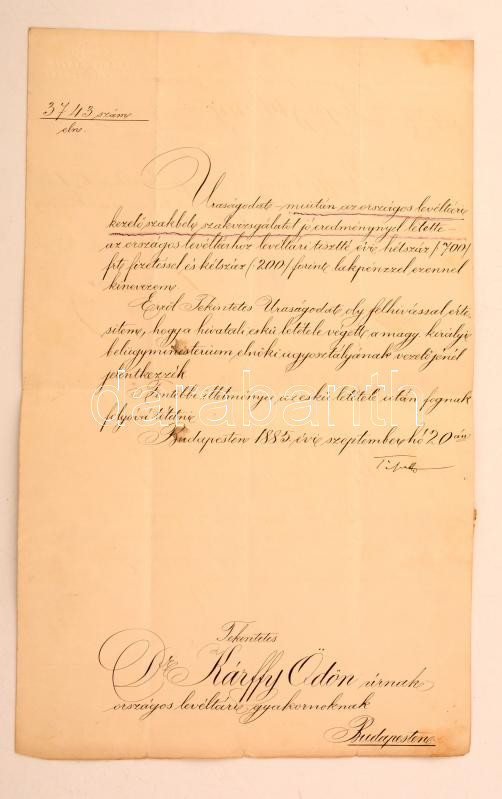 3743 szám
eln.
Uraságodat – miután az országos levéltári
kezelő szakbeli szakvizsgálatot jó eredménynyel letette –
az országos levéltárhoz levéltári tisztté évi hétszáz /700/
frt fizetéssel és kétszáz /200/ forint lakpénzzel ezennel
kinevezem.
Erről Tekintetes Uraságodat oly felhívással érte-
sítem, hogy a hivatali eskü letétele végett a magy. királyi
belügyministerium elnöki ügyosztályának vezetőjénél
jelentkezzék.
Fentebbi illetményei az eskü letétele után fognak
folyóvá tétetni.
Budapesten 1885 évi szeptember hó 20án
Tekintetes
Dr. Kárffy Ödön úrnak
országos levéltári gyakornoknak
Budapesten.
darabanth